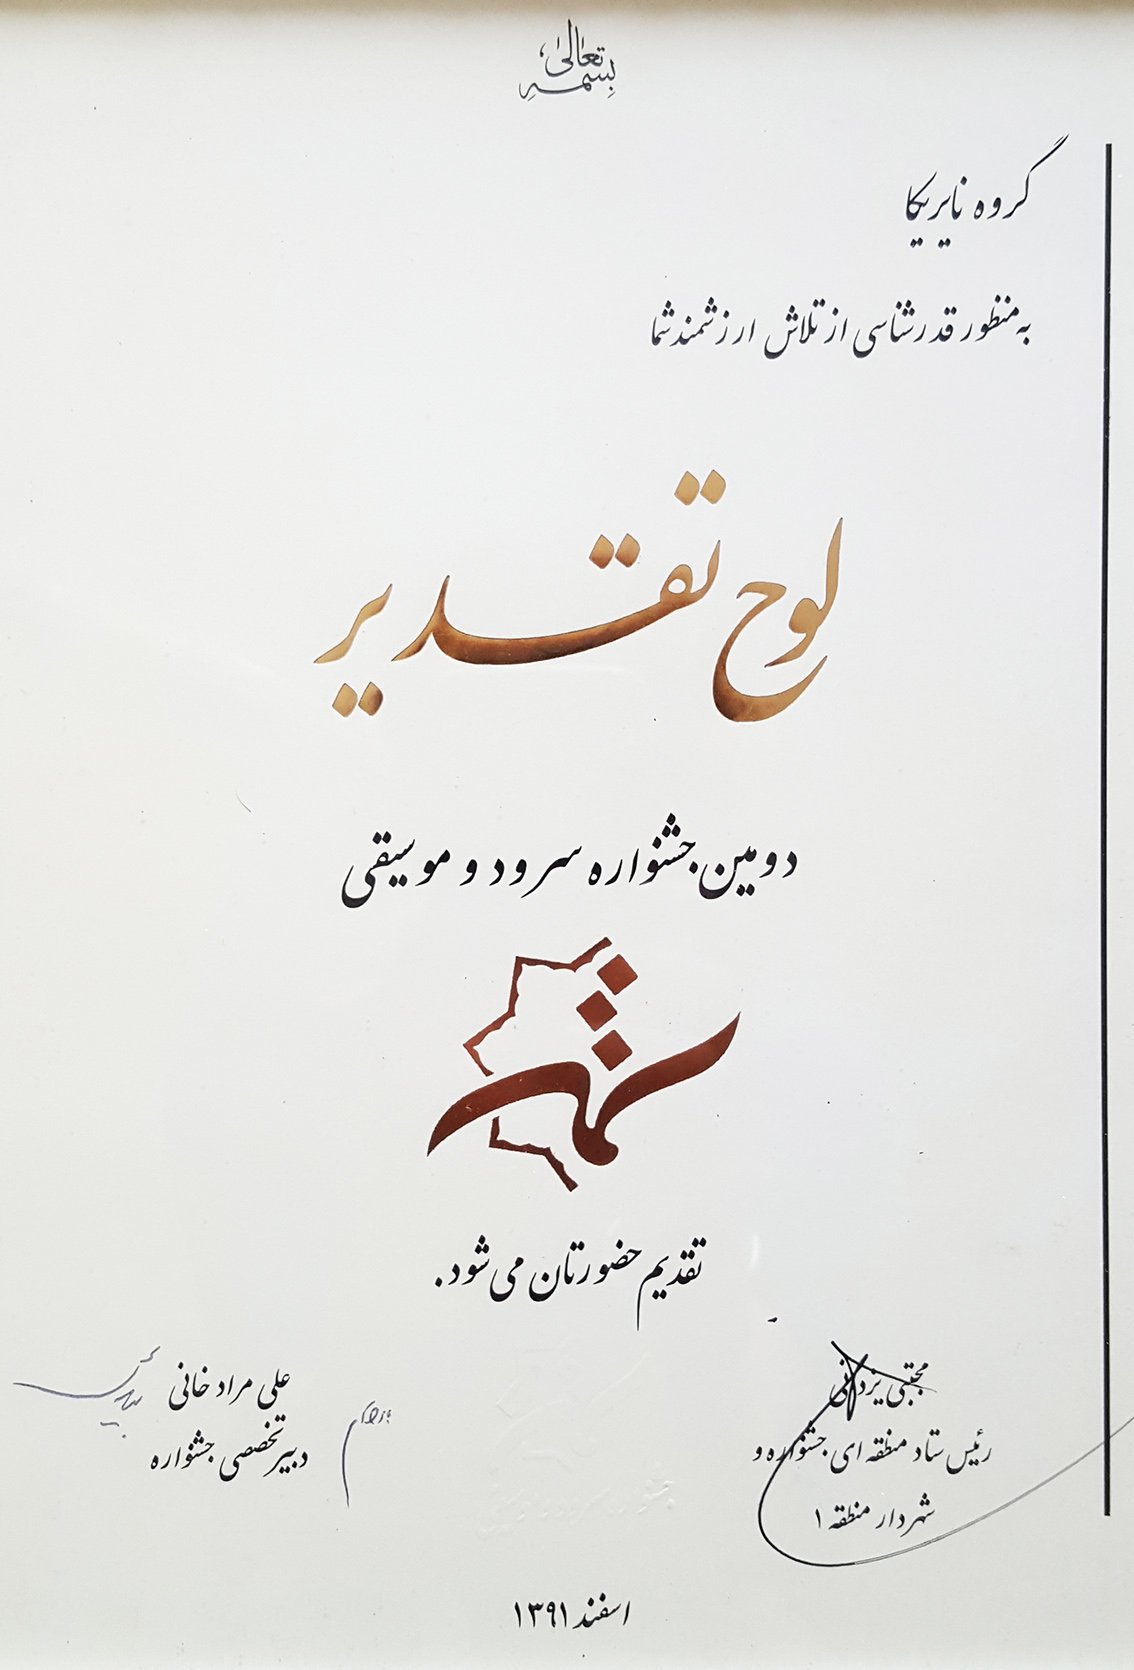 بسمه تعالی
گروه نایریکا
به منظور قدرشناسی از تلاش ارزشمند شما
لوح تقدیر
دومین جشنواره سرود و موسیقی
شهر
تقدیم حضورتان می شود.
مجتبی یزدانی
رئیس ستاد منطقه ای جشنواره و
شهردار منطقه ۱
علی مراد خانی
دبیر تخصصی جشنواره
اسفند ۱۳۹۱